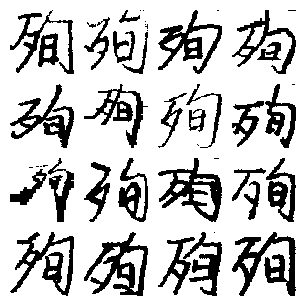 殉殉殉殉
殉殉殉殉
殉殉殉殉
殉殉殉殉